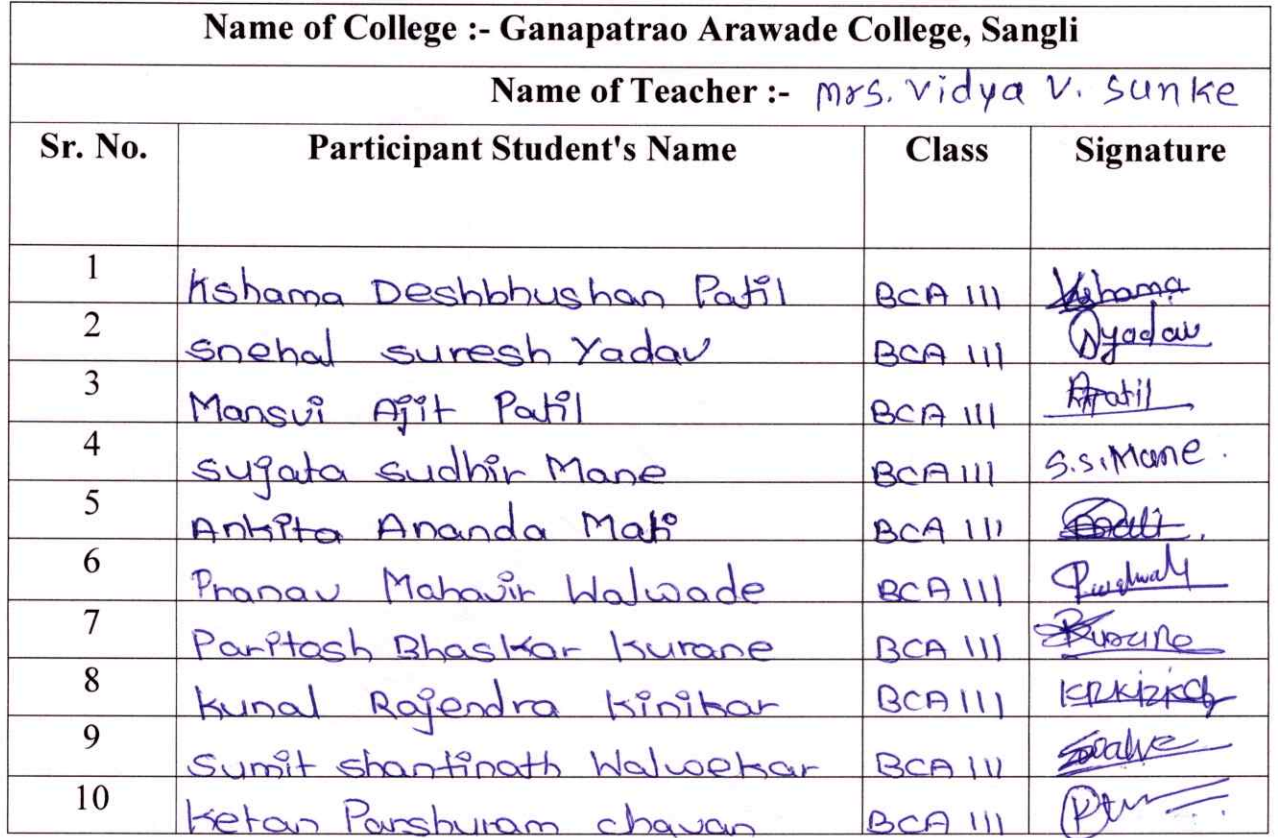 Name of College :- Ganapatrao Arawade College, Sangli
Name of Teacher :- Mrs. Vidya V. Sunke
Sr. No. Participant Student's Name Class Signature
1 Kshama Deshbhushan Patil BCA III Kshama
2 Snehal suresh Yadav BCA III Syadav
3 Mansvi Ajit Patil BCA III APatil
4 Sujata sudhir Mane BCA III S.S.Mane.
5 Ankita Ananda Mali BCA III
6 Pranav Mahavir Walwade BCA III
7 Paritosh Bhaskar Kurane BCA III Kurane
8 Kunal Rajendra Kinikar BCA III
9 Sumit shantinath Walwekar BCA III
10 Ketan Parshuram chavan BCA III